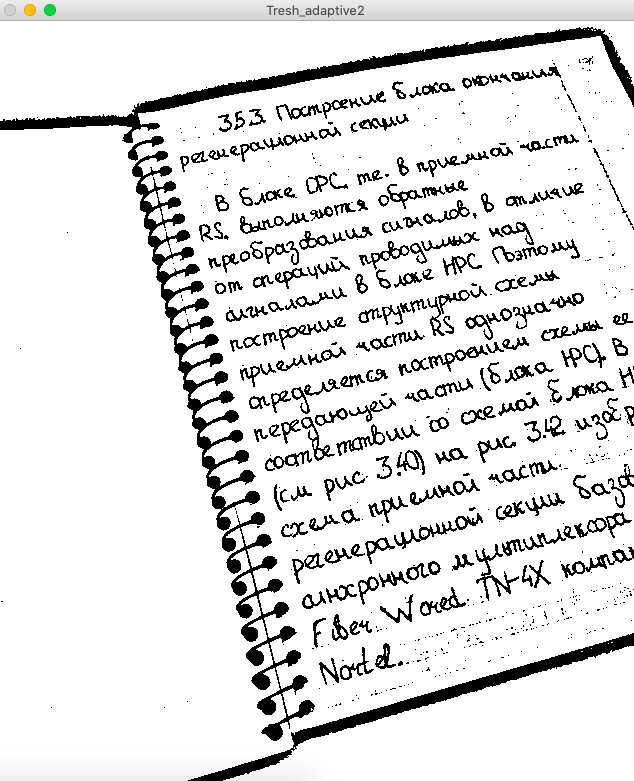 Tresh_adaptive2
3.5.3. Построение блока окончания
регенерационной секции
В блоке СРС, т.е. в приемной части
RS, выполняются обратные
преобразования сигналов, в отличие
от операций проводимых над
сигналами в блоке НРС. Поэтому
построение структурной схемы
приемной части RS однозначно
определяется построением схемы ее
передающей части (блока НРС). В
соответствии со схемой блока
(см рис 3.40) на рис 3.42
схема приемной части
регенерационной секции
синхронного мультиплексора
Fiber Word TN-4X
Nortel.